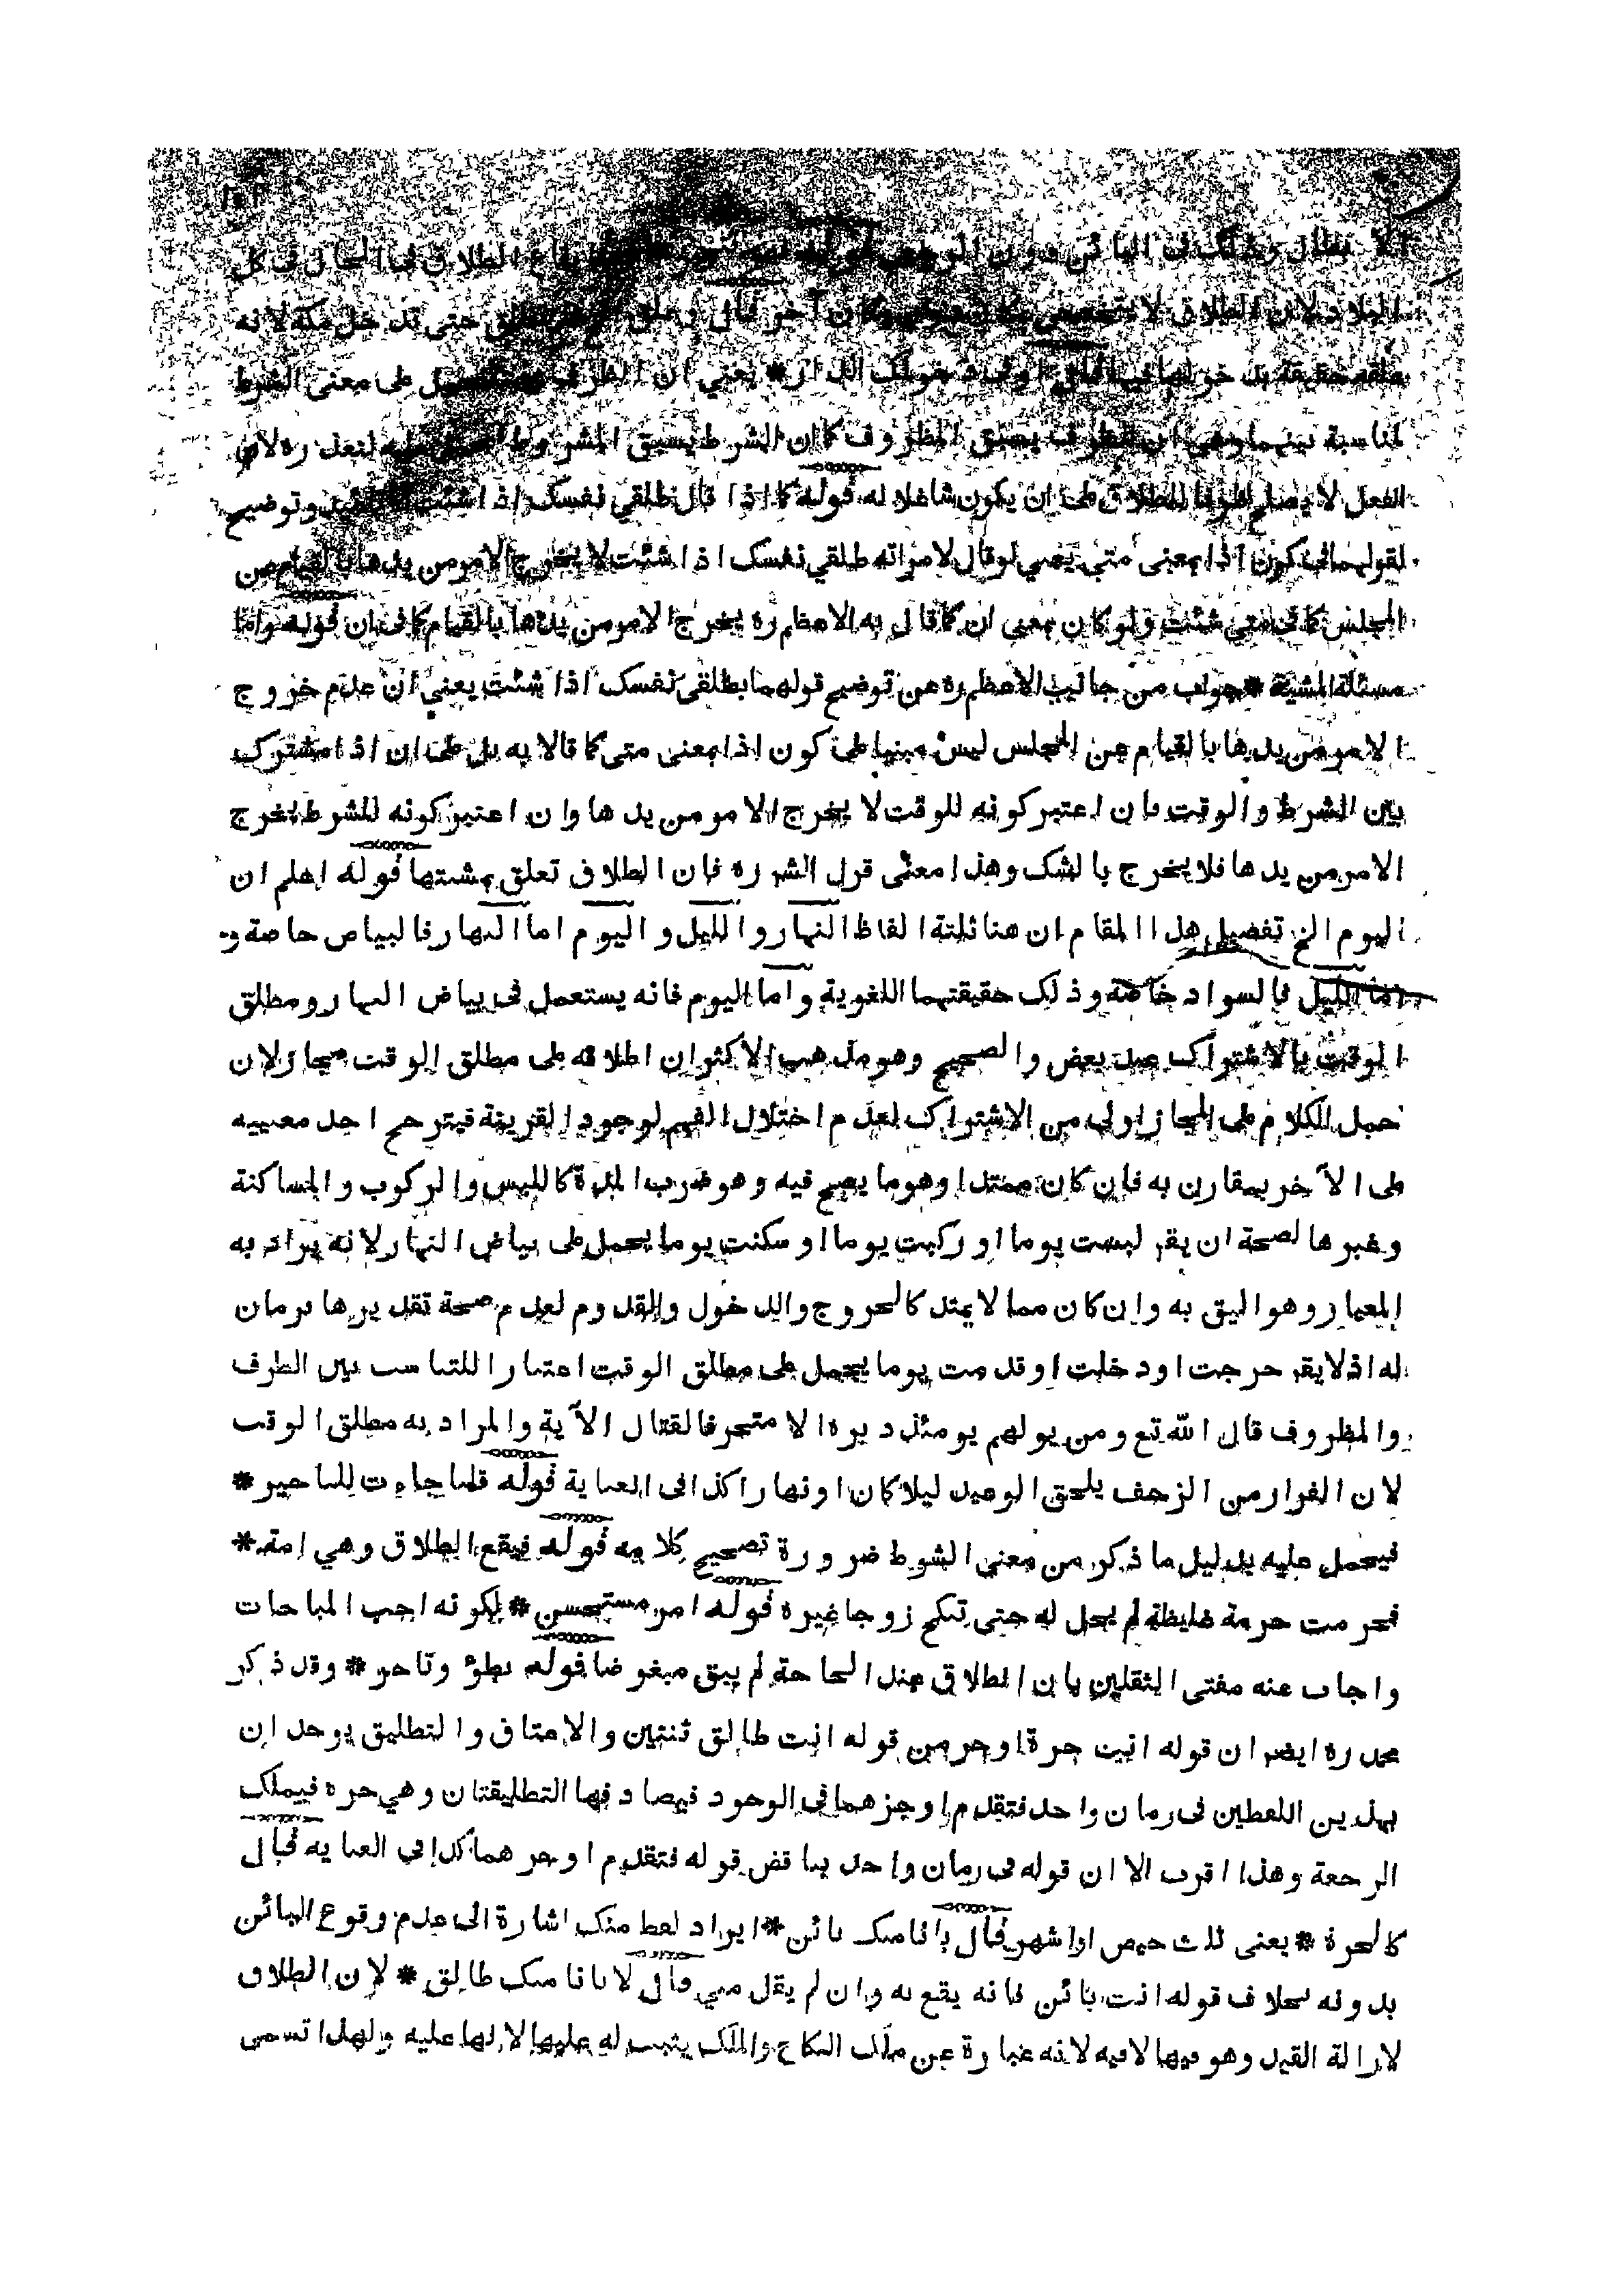 الابطال وذلك فى البائن دون الرجعي قوله الطلاق فى الحال فى كل
البلاد لان الطلاق لا بمكان دون مكان آخر قال حتى تدخل مكة لانه
علقه حقيقة بدخولها قال وفى دخولك الدار * يعني ان الظرف على معنى الشرط
لمناسبة بينهما وهي ان الظرف يسبق المظروف كان الشرط يسبق المشروط لتعذره لان
الفعل لا يصلح ظرفا للطلاق على ان يكون شاغلا له قوله كما اذا قال طلقي نفسك اذا شئت وتوضيح
لقولهما فى كون اذا بمعنى متى يعني لو قال لامراته طلقي نفسك اذا شئت لا يخرج الامر من يدها بالقيام من
المجلس كما فى متى شئت ولو كان بمعنى ان كما قال به الاعظم ره يخرج الامر من يدها بالقيام كما فى ان قوله واما
مسئلة المشية * جواب من جانب الاعظم ره عن توضيح قولهما بطلقي نفسك اذا شئت يعني ان عدم خروج
الامر من يدها بالقيام من المجلس ليس مبنيا على كون اذا بمعنى متى كما قالا به بل على ان اذا مشترك
بين الشرط والوقت فان اعتبر كونه للوقت لا يخرج الامر من يدها وان اعتبر كونه للشرط يخرج
الامر من يدها فلا يخرج بالشك وهذا معنى قول الشر ره فان الطلاق تعلق بمشيتها قوله اعلم ان
اليوم الخ تفصيل هذا المقام ان هنا ثلثة الفاظ النهار والليل واليوم اما النهار فالبياض خاصة و
اما الليل فالسواد خاصة وذلك حقيقتهما اللغوية واما اليوم فانه يستعمل فى بياض النهار ومطلق
الوقت بالاشتراك عند بعض والصحيح وهو مذهب الاكثر ان اطلاقه على مطلق الوقت مجاز لان
حمل الكلام على المجاز اولى من الاشتراك لعدم اختلال الفهم لوجود القرينة فيترجح احد معنييه
على الآخر بمقارن به فان كان ممتدا وهو ما يصح فيه وهو ضرب المدة كاللبس والركوب والمساكنة
وغيرها لصحة ان يقر لبست يوما او ركبت يوما او سكنت يوما يحمل على بياض النهار لانه يراد به
المعيار وهو اليق به وان كان مما لا يمتد كالخروج والدخول والقدوم لعدم صحة تقديرها بزمان
له اذ لا يقر خرجت او دخلت او قدمت يوما يحمل على مطلق الوقت اعتبارا للتناسب بين الظرف
والمظروف قال الله تع ومن يولهم يومئذ دبره الا متحرفا لقتال الآية والمراد به مطلق الوقت
لان الفرار من الزحف يلحق الوعيد ليلا كان او نهارا كذا فى العناية قوله قلنا جاءت للتاخير *
فيحمل عليه بدليل ما ذكر من معنى الشرط ضرورة تصحيح كلامه قوله فيقع الطلاق وهي امة *
فحرمت حرمة غليظة لم يحل له حتى تنكح زوجا غيره قوله امر مستحسن * لكونه احب المباحات
واجاب عنه مفتي الثقلين بان الطلاق عند الحاجة لم يبق مبغوضا قوله بطؤ وتاخر * وقد ذكر
محمد ره ايضر ان قوله انت حرة اوجز من قوله انت طالق ثنتين والاعتاق والتطليق يوجد ان
بهذين اللفظين فى زمان واحد فتقدم اوجزهما فى الوجود فيصادفها التطليقتان وهي حرة فيملك
الرجعة وهذا اقرب الا ان قوله فى زمان واحد يناقض قوله فتقدم اوجزهما كذا فى العناية قال
كالحرة * يعني ثلث حيض او اشهر قال بانا منك بائن * ايراد لفظ منك اشارة الى عدم وقوع البائن
بدونه بخلاف قوله انت بائن فانه يقع به وان لم يقل مني قال لا بانا منك طالق * لان الطلاق
لازالة القيد وهو فيها لا فيه لانه عبارة عن ملك النكاح والملك يثبت له عليها لا لها عليه ولهذا تسمى